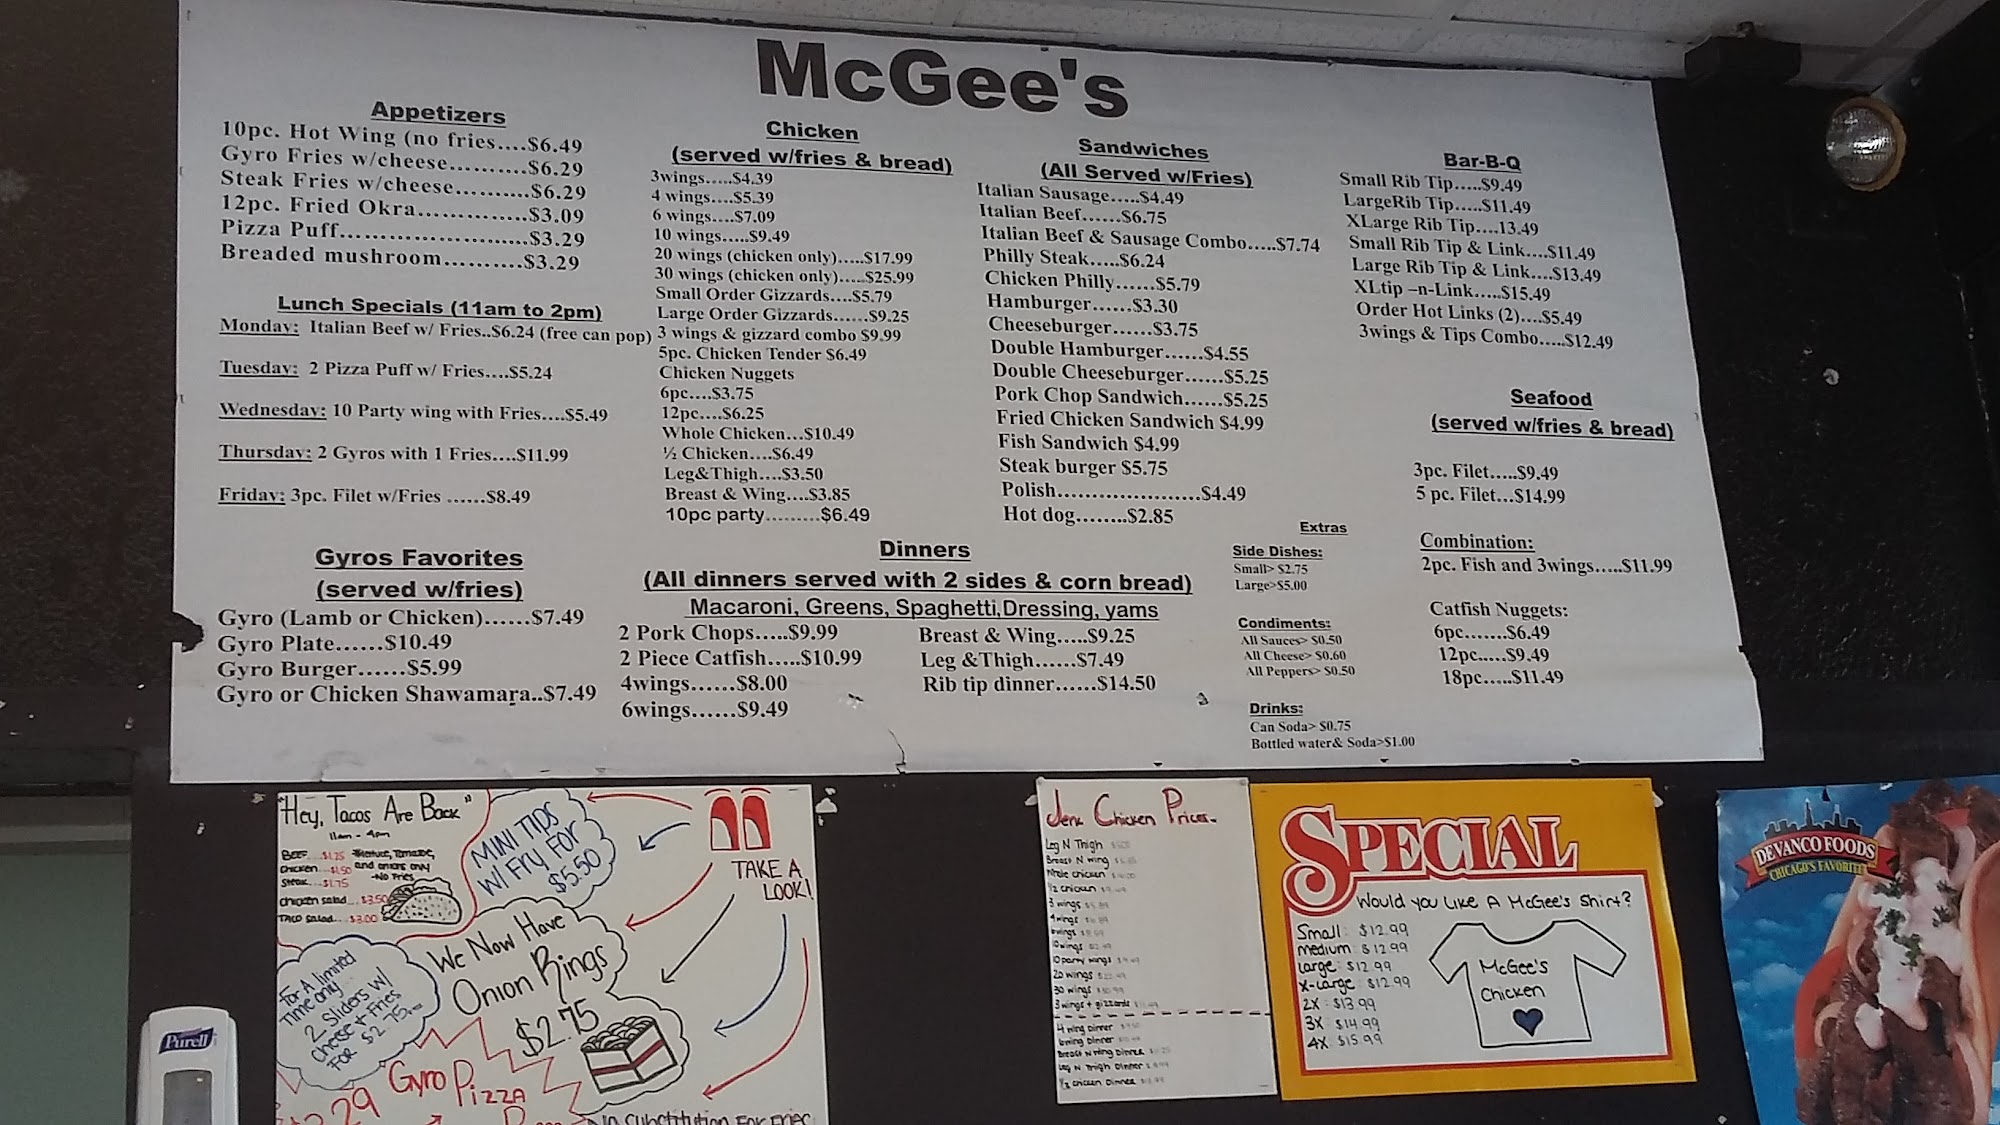 McGee's
Appetizers
10pc. Hot Wing (no fries....$6.49
Gyro Fries w/cheese...........$6.29
Steak Fries w/cheese..........$6.29
12pc. Fried Okra...............$3.09
Pizza Puff.........................$3.29
Breaded mushroom...........$3.29
Lunch Specials (11am to 2pm)
Monday: Italian Beef w/ Fries..$6.24 (free can pop)
Tuesday: 2 Pizza Puff w/ Fries....$5.24
Wednesday: 10 Party wing with Fries....$5.49
Thursday: 2 Gyros with 1 Fries....$11.99
Friday: 3pc. Filet w/Fries ......$8.49
Gyros Favorites
(served w/fries)
Gyro (Lamb or Chicken)......$7.49
Gyro Plate.......$10.49
Gyro Burger......$5.99
Gyro or Chicken Shawamara..$7.49
Chicken
(served w/fries & bread)
3wings.....$4.39
4 wings....$5.39
6 wings....$7.09
10 wings.....$9.49
20 wings (chicken only).....$17.99
30 wings (chicken only).....$25.99
Small Order Gizzards....$5.79
Large Order Gizzards......$9.25
3 wings & gizzard combo $9.99
5pc. Chicken Tender $6.49
Chicken Nuggets
6pc....$3.75
12pc....$6.25
Whole Chicken...$10.49
½ Chicken....$6.49
Leg&Thigh....$3.50
Breast & Wing....$3.85
10pc party.........$6.49
Sandwiches
(All Served w/Fries)
Italian Sausage....$4.49
Italian Beef......$6.75
Italian Beef & Sausage Combo.....$7.74
Philly Steak.....$6.24
Chicken Philly......$5.79
Hamburger......$3.30
Cheeseburger......$3.75
Double Hamburger......$4.55
Double Cheeseburger......$5.25
Pork Chop Sandwich......$5.25
Fried Chicken Sandwich $4.99
Fish Sandwich $4.99
Steak burger $5.75
Polish......................$4.49
Hot dog........$2.85
Dinners
(All dinners served with 2 sides & corn bread)
Macaroni, Greens, Spaghetti,Dressing, yams
2 Pork Chops.....$9.99
2 Piece Catfish.....$10.99
4wings......$8.00
6wings......$9.49
Breast & Wing.....$9.25
Leg &Thigh......$7.49
Rib tip dinner......$14.50
Extras
Side Dishes:
Small> $2.75
Large>$5.00
Condiments:
All Sauces> $0.50
All Cheese> $0.60
All Peppers> $0.50
Drinks:
Can Soda> $0.75
Bottled water& Soda>$1.00
Bar-B-Q
Small Rib Tip.....$9.49
LargeRib Tip.....$11.49
XLarge Rib Tip....13.49
Small Rib Tip & Link....$11.49
Large Rib Tip & Link....$13.49
XLtip –n-Link.....$15.49
Order Hot Links (2)....$5.49
3wings & Tips Combo.....$12.49
Seafood
(served w/fries & bread)
3pc. Filet.....$9.49
5 pc. Filet...$14.99
Combination:
2pc. Fish and 3wings.....$11.99
Catfish Nuggets:
6pc.......$6.49
12pc.....$9.49
18pc.....$11.49
"Hey, Tacos Are Back"
11am - 4pm
Beef...$1.25
Chicken...$1.50
Steak...$1.75
*lettuce, Tomatoe, and onions only
-No Fries
Chicken salad...$3.50
Taco salad...$3.00
MINI TIPS
W/ FRY FOR
$5.50
TAKE A
LOOK!
We Now Have
Onion Rings
$2.75
For A limited
Time only
2 Sliders w/
cheese + Fries
For $2.75
Gyro Pizza
No Substitution For Fries
Purell
Jerk Chicken Prices.
Leg N Thigh
Breast N wing
Whole chicken
1/2 chicken
3 wings
4wings
6wings
10wings
10 party wings
20 wings
30 wings
3 wings + gizzards
4 wing Dinner
6wing Dinner
Breast N Wing Dinner
Leg N Thigh Dinner
1/2 chicken Dinner
SPECIAL
Would you Like A McGee's Shirt?
Small: $12.99
medium: $12.99
Large: $12.99
X-Large: $12.99
2X: $13.99
3X: $14.99
4X: $15.99
McGee's
Chicken
DEVANCO FOODS
CHICAGO'S FAVORITE